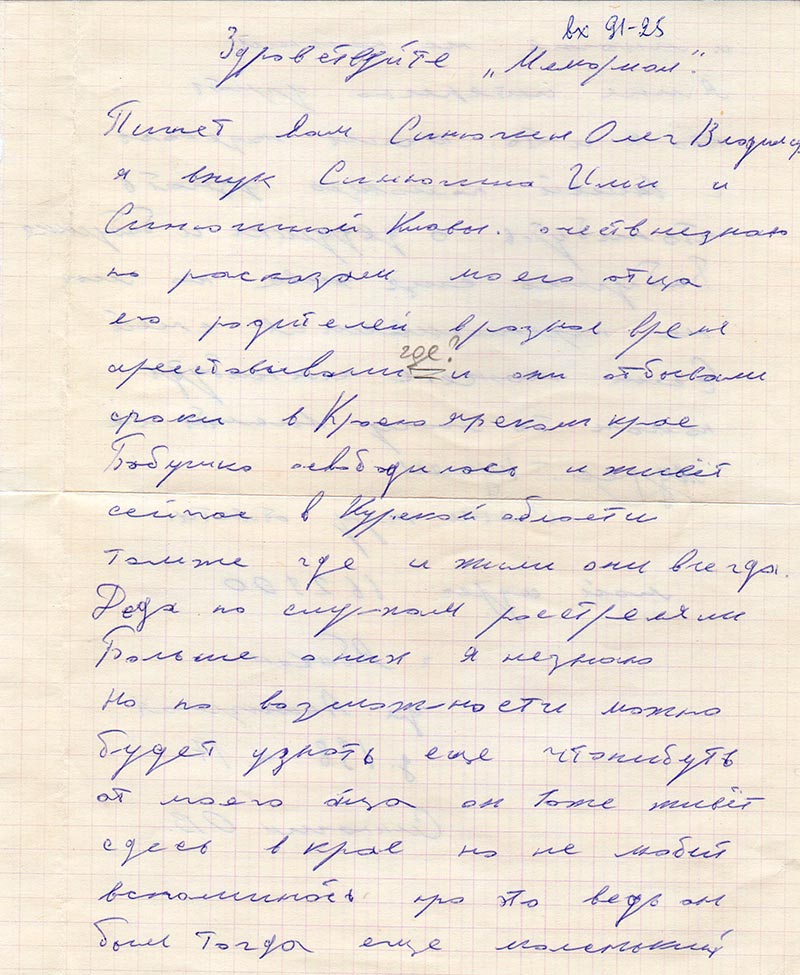 вх 91-25
Здравствуйте „Мемориал".
Пишет вам Синюгин Олег Владимир
я внук Синюгина Ильи и
Синюгиной Клавы. очеств незнаю
по расказам моего отца
его родителей в разное время
где?
арестовывали и они отбывали
сроки в Красноярском крае
Бабушка освободилась и живёт
сейчас в Курской области
тамже где и жили они всегда.
Деда по слухам расстреляли
Больше о них я незнаю
Но по возможности можно
будет узнать еще чтонибуть
от моего отца он тоже живёт
здесь в крае но не любит
вспоминать про это ведь он
был тогда еще маленький